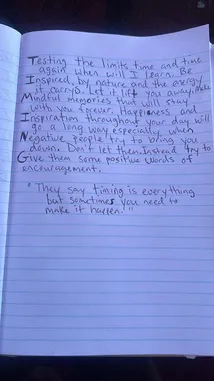 Testing the limits time and time
again when will I learn. Be
Inspired by nature and the energy
it carrys. Let it lift you away. Make
Mindful memories that will stay
with you forever. Happiness and
Inspiration throughout your day will
go a long way especially when
Negative people try to bring you
down. Don't let them. Instead try to
Give them some positive words of
encouragement.
"They say timing is everything
but sometimes you need to
make it happen."